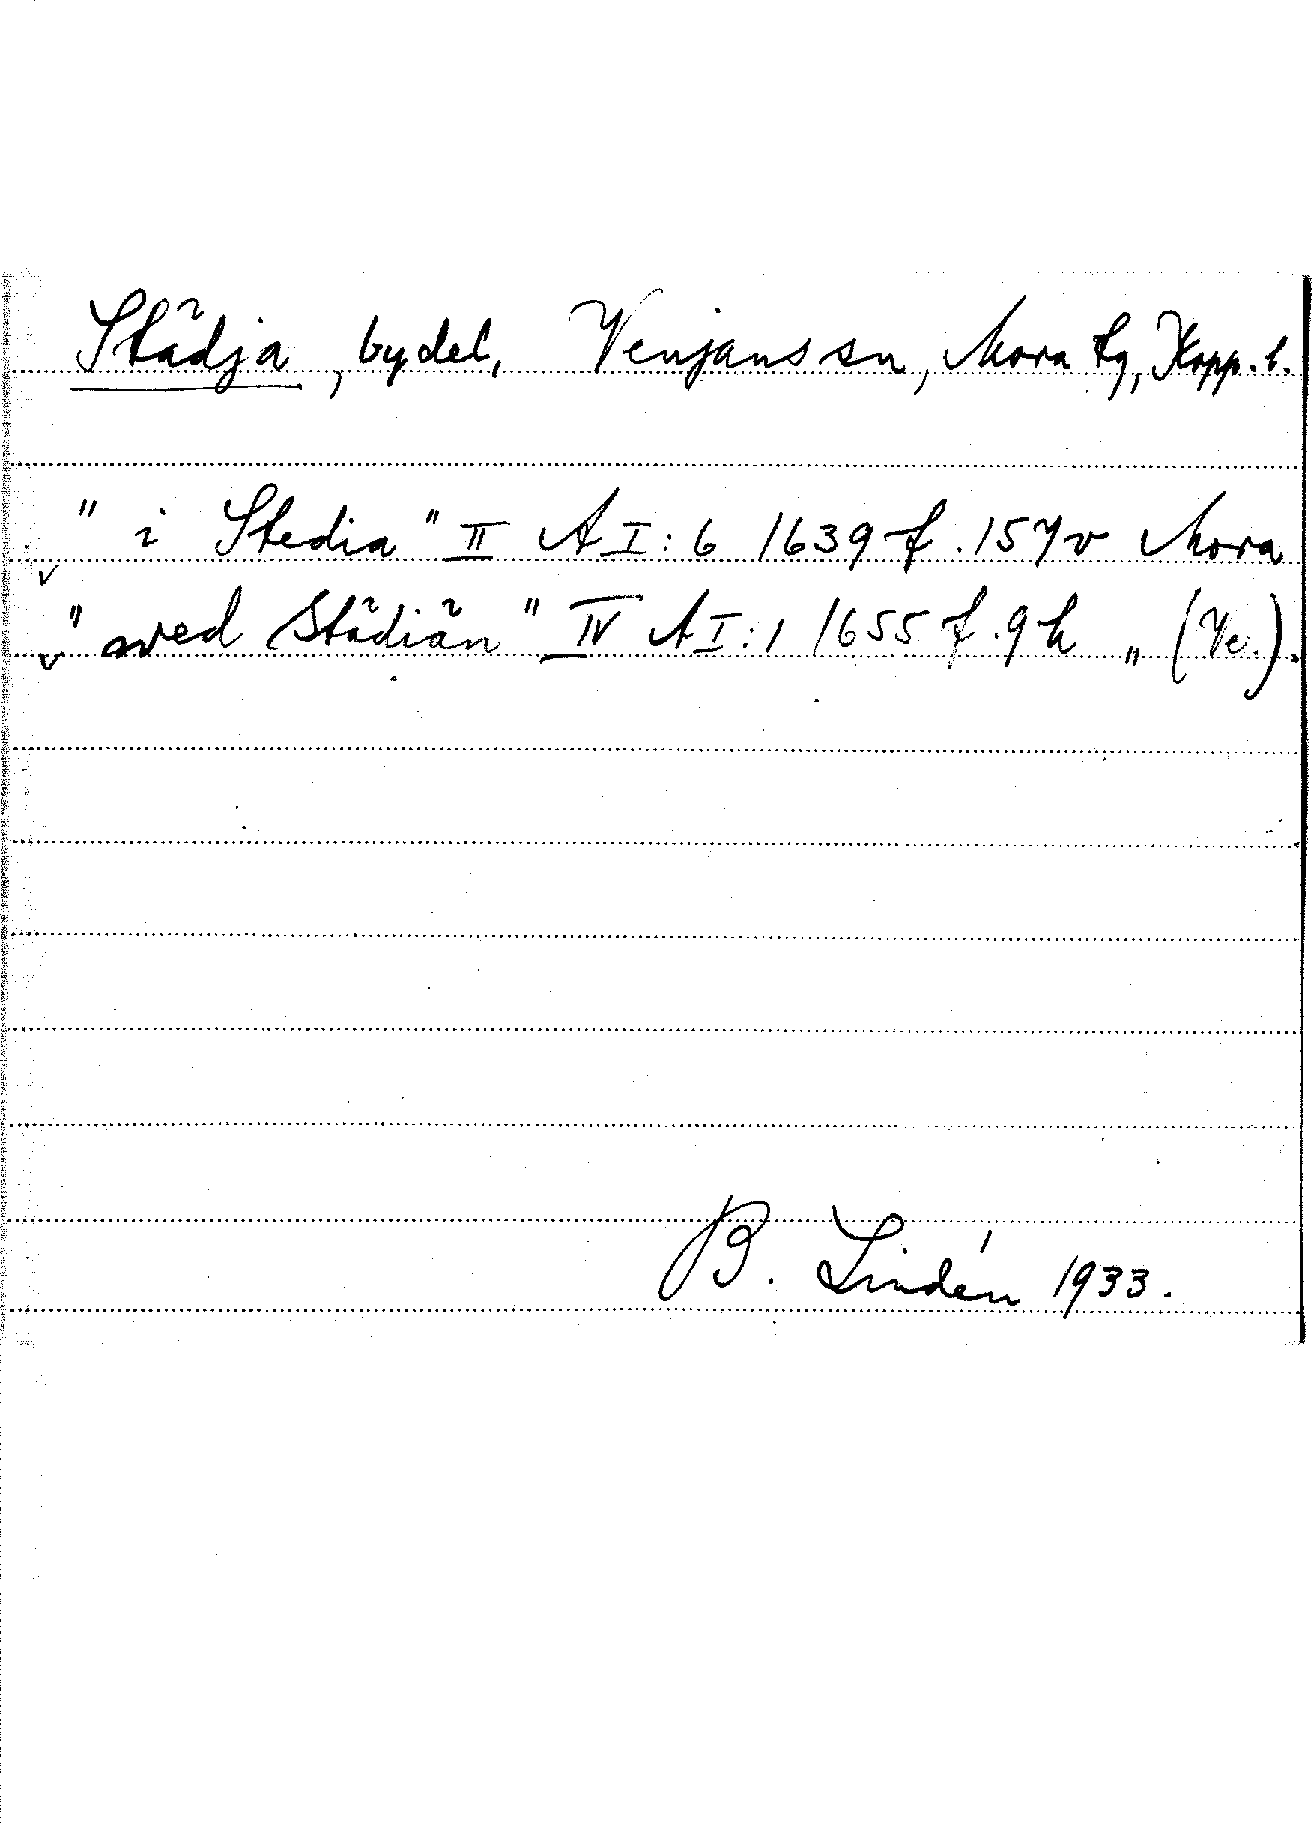 Städja, bydel, Venjans sn, Mora tg, Kopp. l.
" i Stedia " II A I : 6 1639 f. 157 v Mora
" wed Städiän " IV A I : 1 1655 f. 9 h „ (Ve.).
B. Lindén 1933.